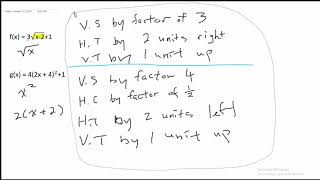 f(x) = 3√x-2+1
√x
g(x) = 4(2x + 4)²+1
x²
2(x+2)
V.S by factor of 3
H.T by 2 units right
V.T by 1 unit up
V.S by factor 4
H.C by factor of 1/2
H.T by 2 units left
V.T by 1 unit up